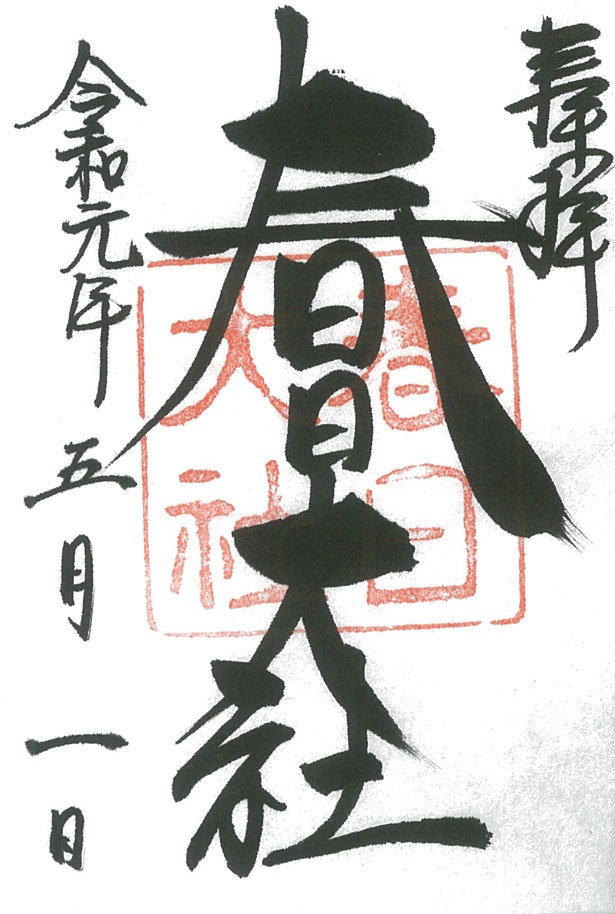 奉拝
春日大社
春日
大社
令和元年五月一日